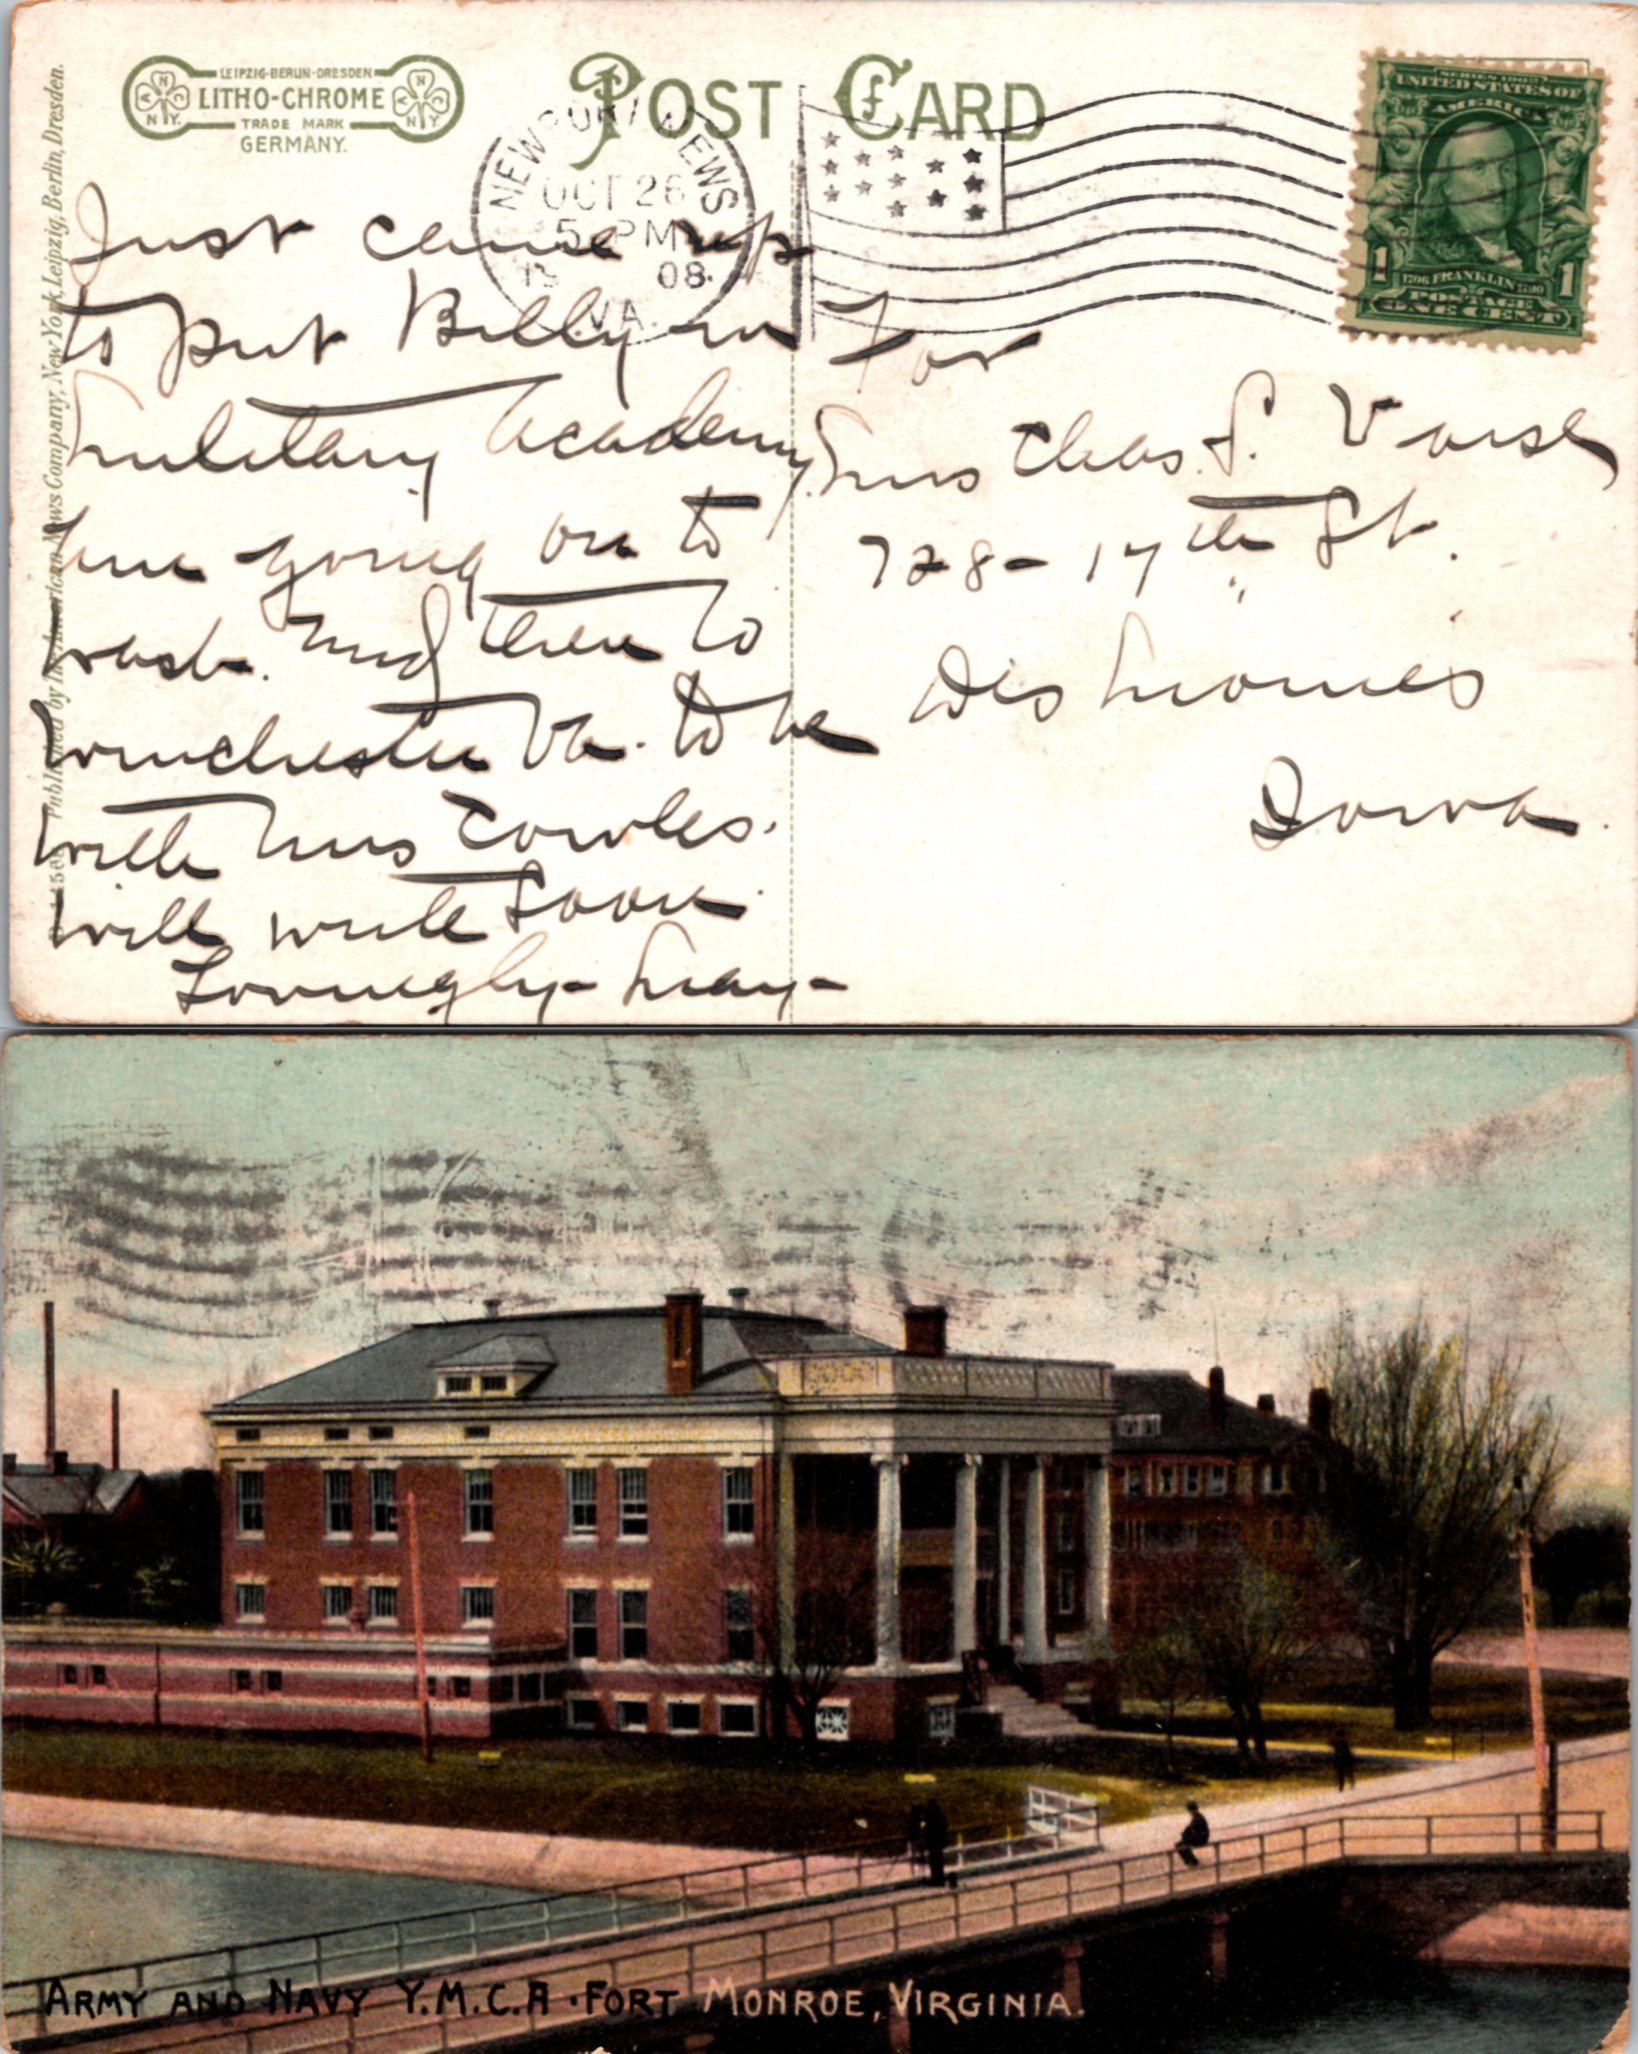 LEIPZIG-BERLIN-DRESDEN
LITHO-CHROME
TRADE MARK
GERMANY.
N.Y.
N.Y.
POST CARD
NEWPORT NEWS
OCT 26
5 PM
08
VA.
SERIES 1902
UNITED STATES OF
AMERICA
1
1
1706 FRANKLIN 1790
POSTAGE
ONE CENT
Published by the American News Company, New York, Leipzig, Berlin, Dresden.
Just came up
to put Billy in
Military Academy
Am going on to
Wash. and then to
Winchester Va. to be
with Mrs Cowles.
Will write soon
Lovingly - May -
For
Mrs Chas. S. Vorse
728 - 17th St.
Des Moines
Iowa.
ARMY AND NAVY Y.M.C.A. FORT MONROE, VIRGINIA.